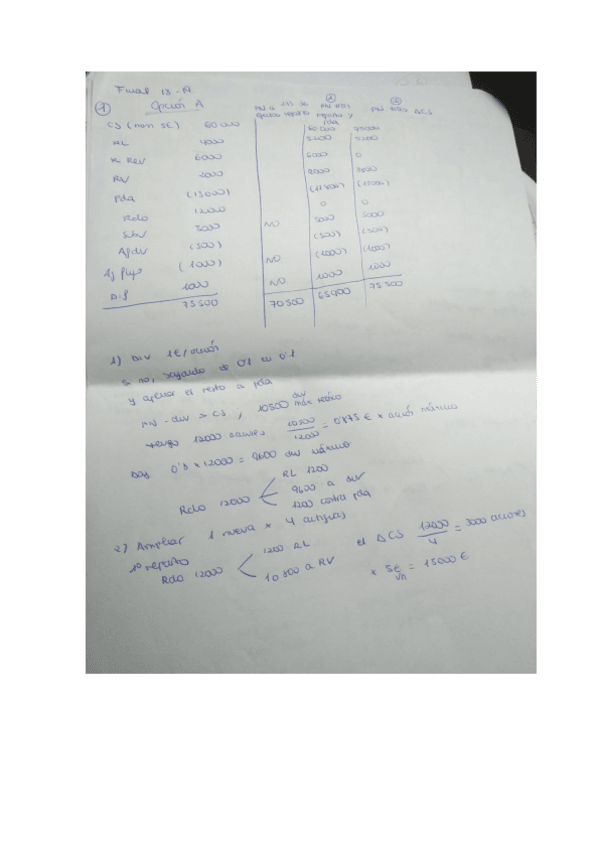 Final 18-19
① Opción A
PN a efectos reparto
① PN tras reparto y pda
② PN tras ΔCS
CS (nom 5€) 60000 60000 75000
RL 4000 5200 5200
R Rev 6000 6000 0
RV 2000 2000
Pda (13000) (11800) (11800)
Rdo 12000 0 0
Subv 5000 NO 5000 5000
(500) (500) (500)
Aj (1000) NO (1000) (1000)
Dif 1000 NO 1000 1000
75500 70500 65900 75500
1) Div 1€/acción
si no, bajando de 0'1 en 0'1
y aplicar el resto a pda
PN - div > CS, 10500 div máx teórico
tengo 12000 acciones 10500/12000 = 0'875 € x acción máximo
Doy 0'8 x 12000 = 9600 div máximo
Rdo 12000
RL 1200
9600 a DIV
1200 contra pda
2) Ampliar 1 nueva x 4 antiguas
1º reparto
Rdo 12000
1200 RL
10800 a RV
el ΔCS 12000/4 = 3000 acciones
x 5€ vn = 15000 €